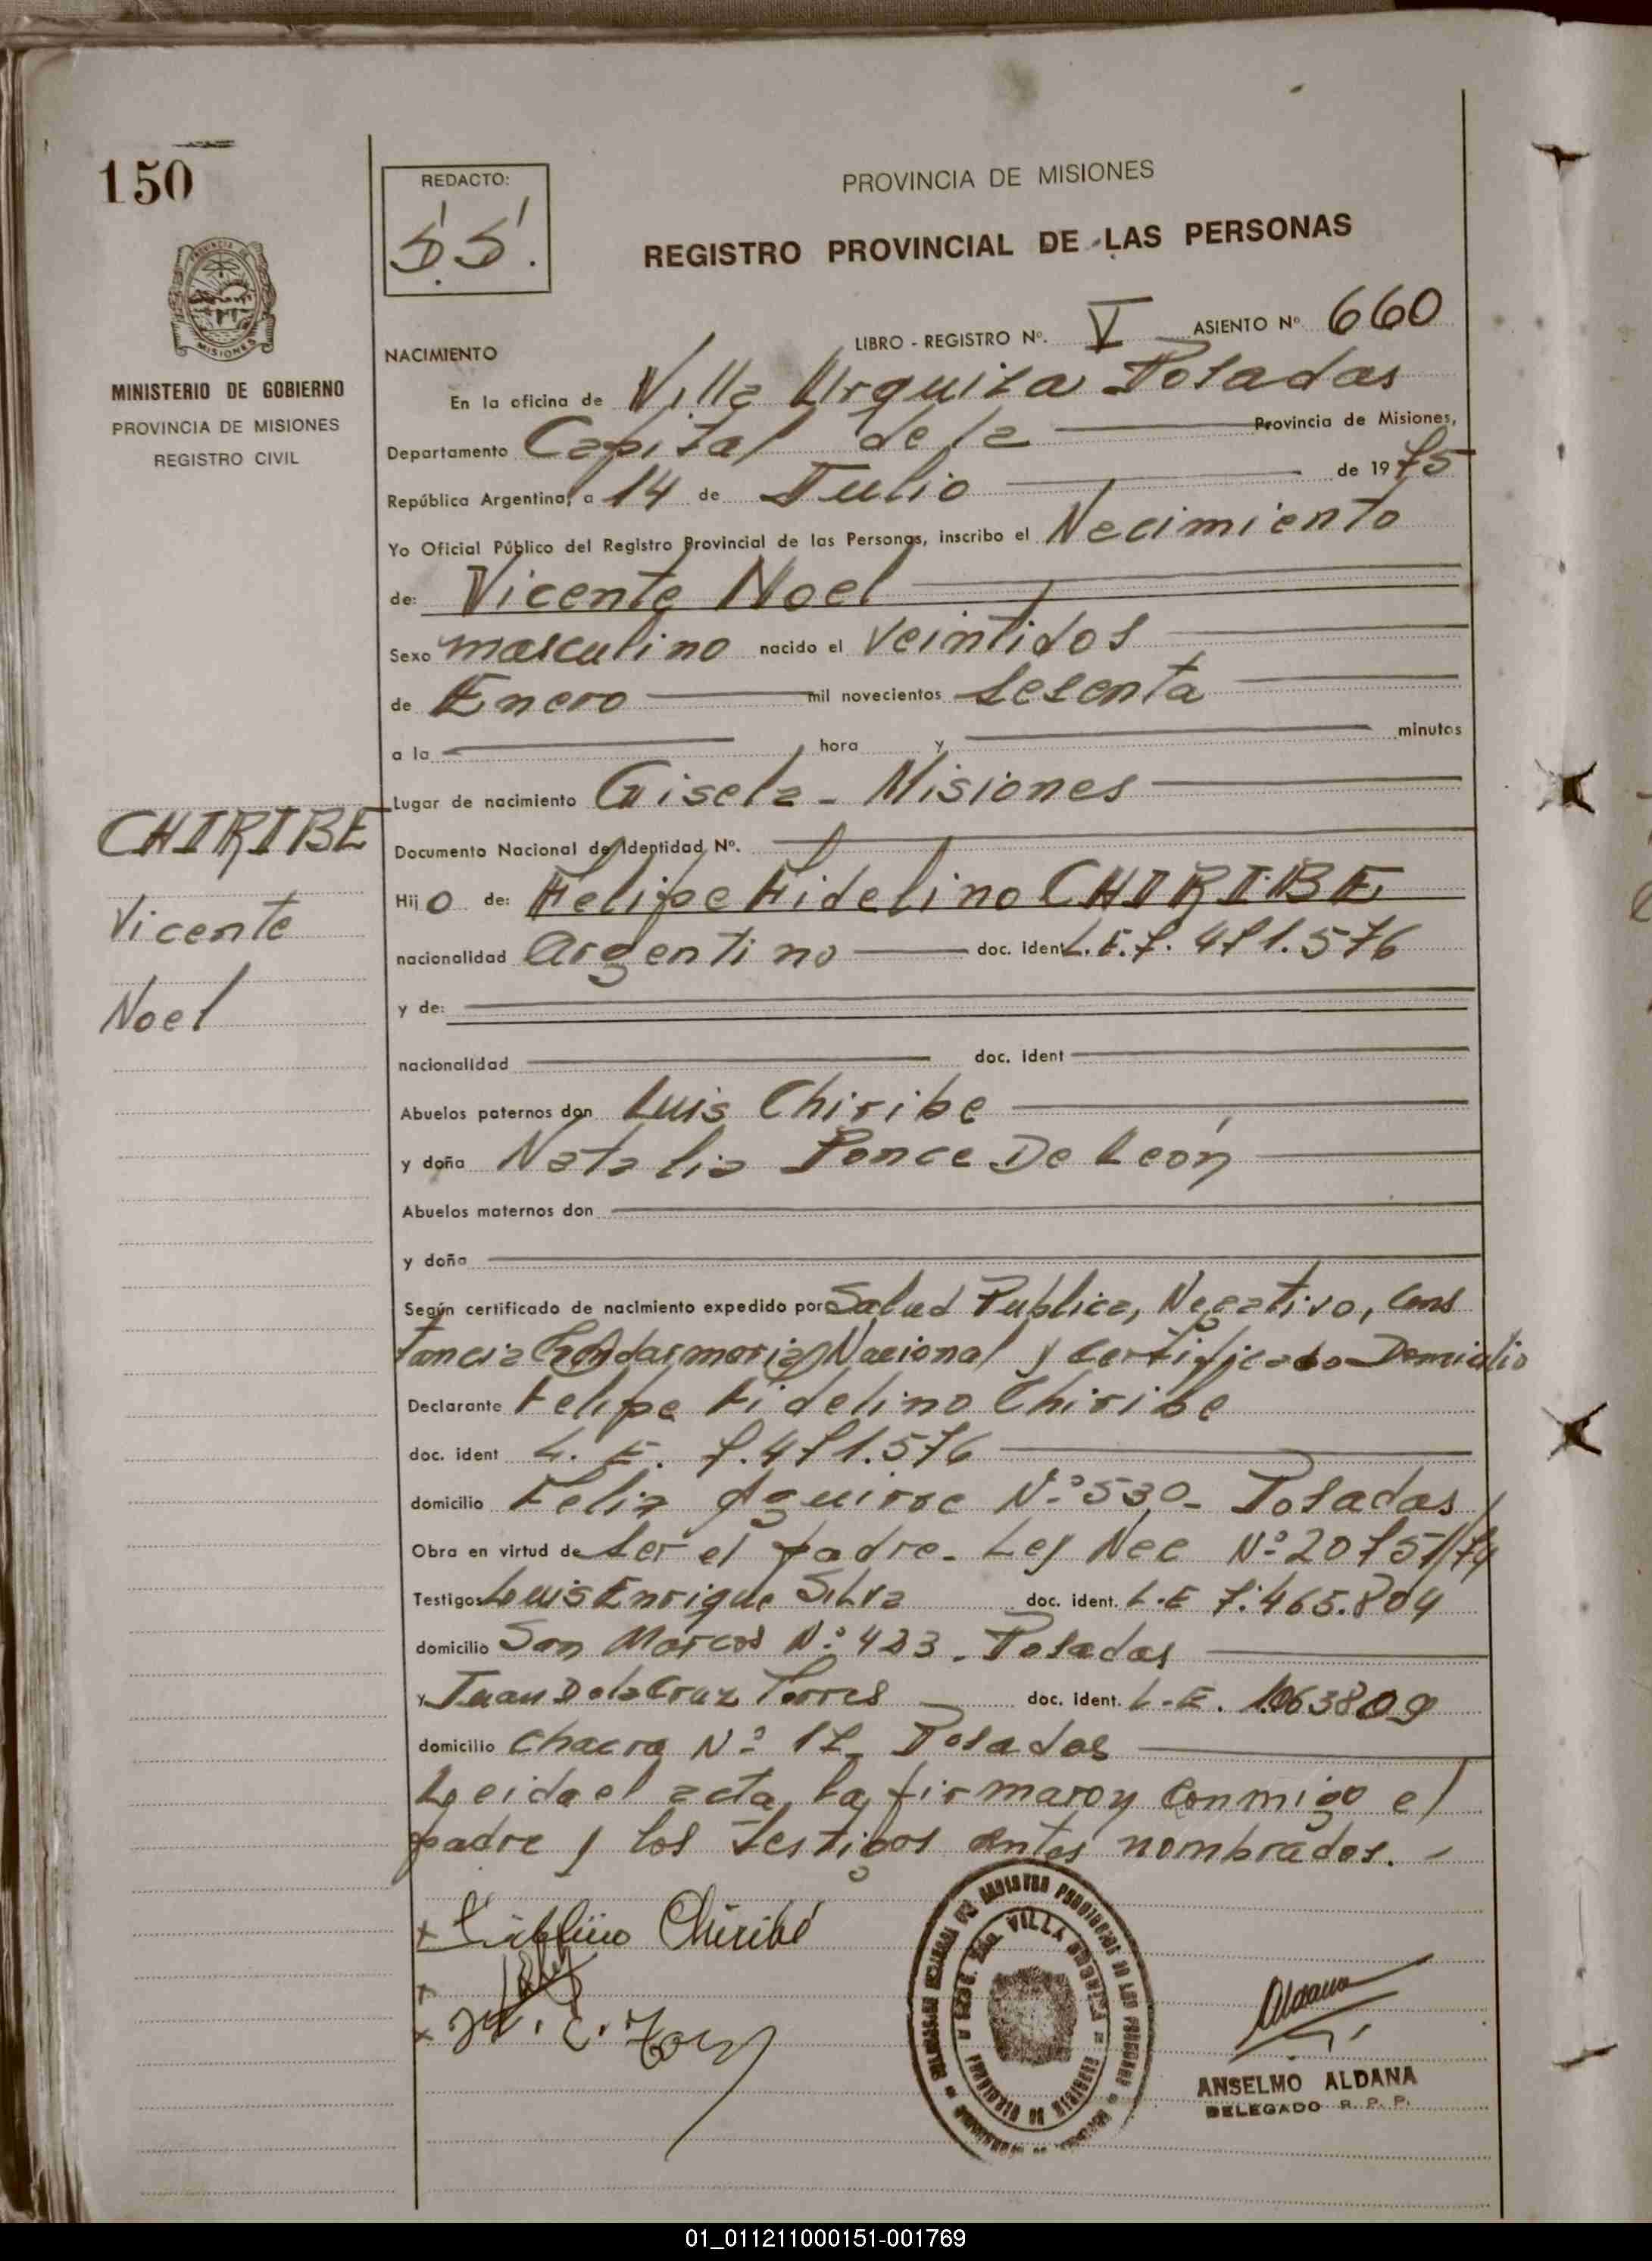 150
REDACTO:
S.S.
PROVINCIA DE MISIONES
REGISTRO PROVINCIAL DE LAS PERSONAS
MISIONES
MINISTERIO DE GOBIERNO
PROVINCIA DE MISIONES
REGISTRO CIVIL
LIBRO - REGISTRO Nº. V ASIENTO Nº 660
NACIMIENTO
En la oficina de Villa Urquiza Posadas
Departamento Capital de la Provincia de Misiones,
República Argentina, a 14 de Julio de 1975
Yo Oficial Público del Registro Provincial de las Personas, inscribo el Necimiento
de: Vicente Noel
Sexo masculino nacido el veintidos
de Enero mil novecientos sesenta
a la hora y minutos
Lugar de nacimiento Gisela - Misiones
CHIRIBE
Vicente
Noel
Documento Nacional de Identidad Nº.
Hijo de: Felipe Fidelino CHIRIBE
nacionalidad Argentino doc. ident L.E. 7.471.576
y de:
nacionalidad doc. ident
Abuelos paternos don Luis Chiribe
y doña Natalia Ponce De León
Abuelos maternos don
y doña
Según certificado de nacimiento expedido por Salud Publica, Negativo, Cons
tancia Gendarmeria Nacional y Certificado Domicilio
Declarante Felipe Fidelino Chiribe
doc. ident L. E. 7.471.576
domicilio Felix Aguirre N.º 530- Posadas
Obra en virtud de ser el padre. Ley Nac Nº 20751/74
Testigos Luis Enrique Silva doc. ident. L.E 7.465.804
domicilio San Marcos N.º 423. Posadas
y Juan De la Cruz Torres doc. ident. L.E. 1.063809
domicilio Chacra Nº 17- Posadas
Leida el acta la firmaron conmigo el
padre y los testigos antes nombrados. -
Chiribé
VILLA URQUIZA
Aldana
ANSELMO ALDANA
DELEGADO R. P. P.
01_011211000151-001769